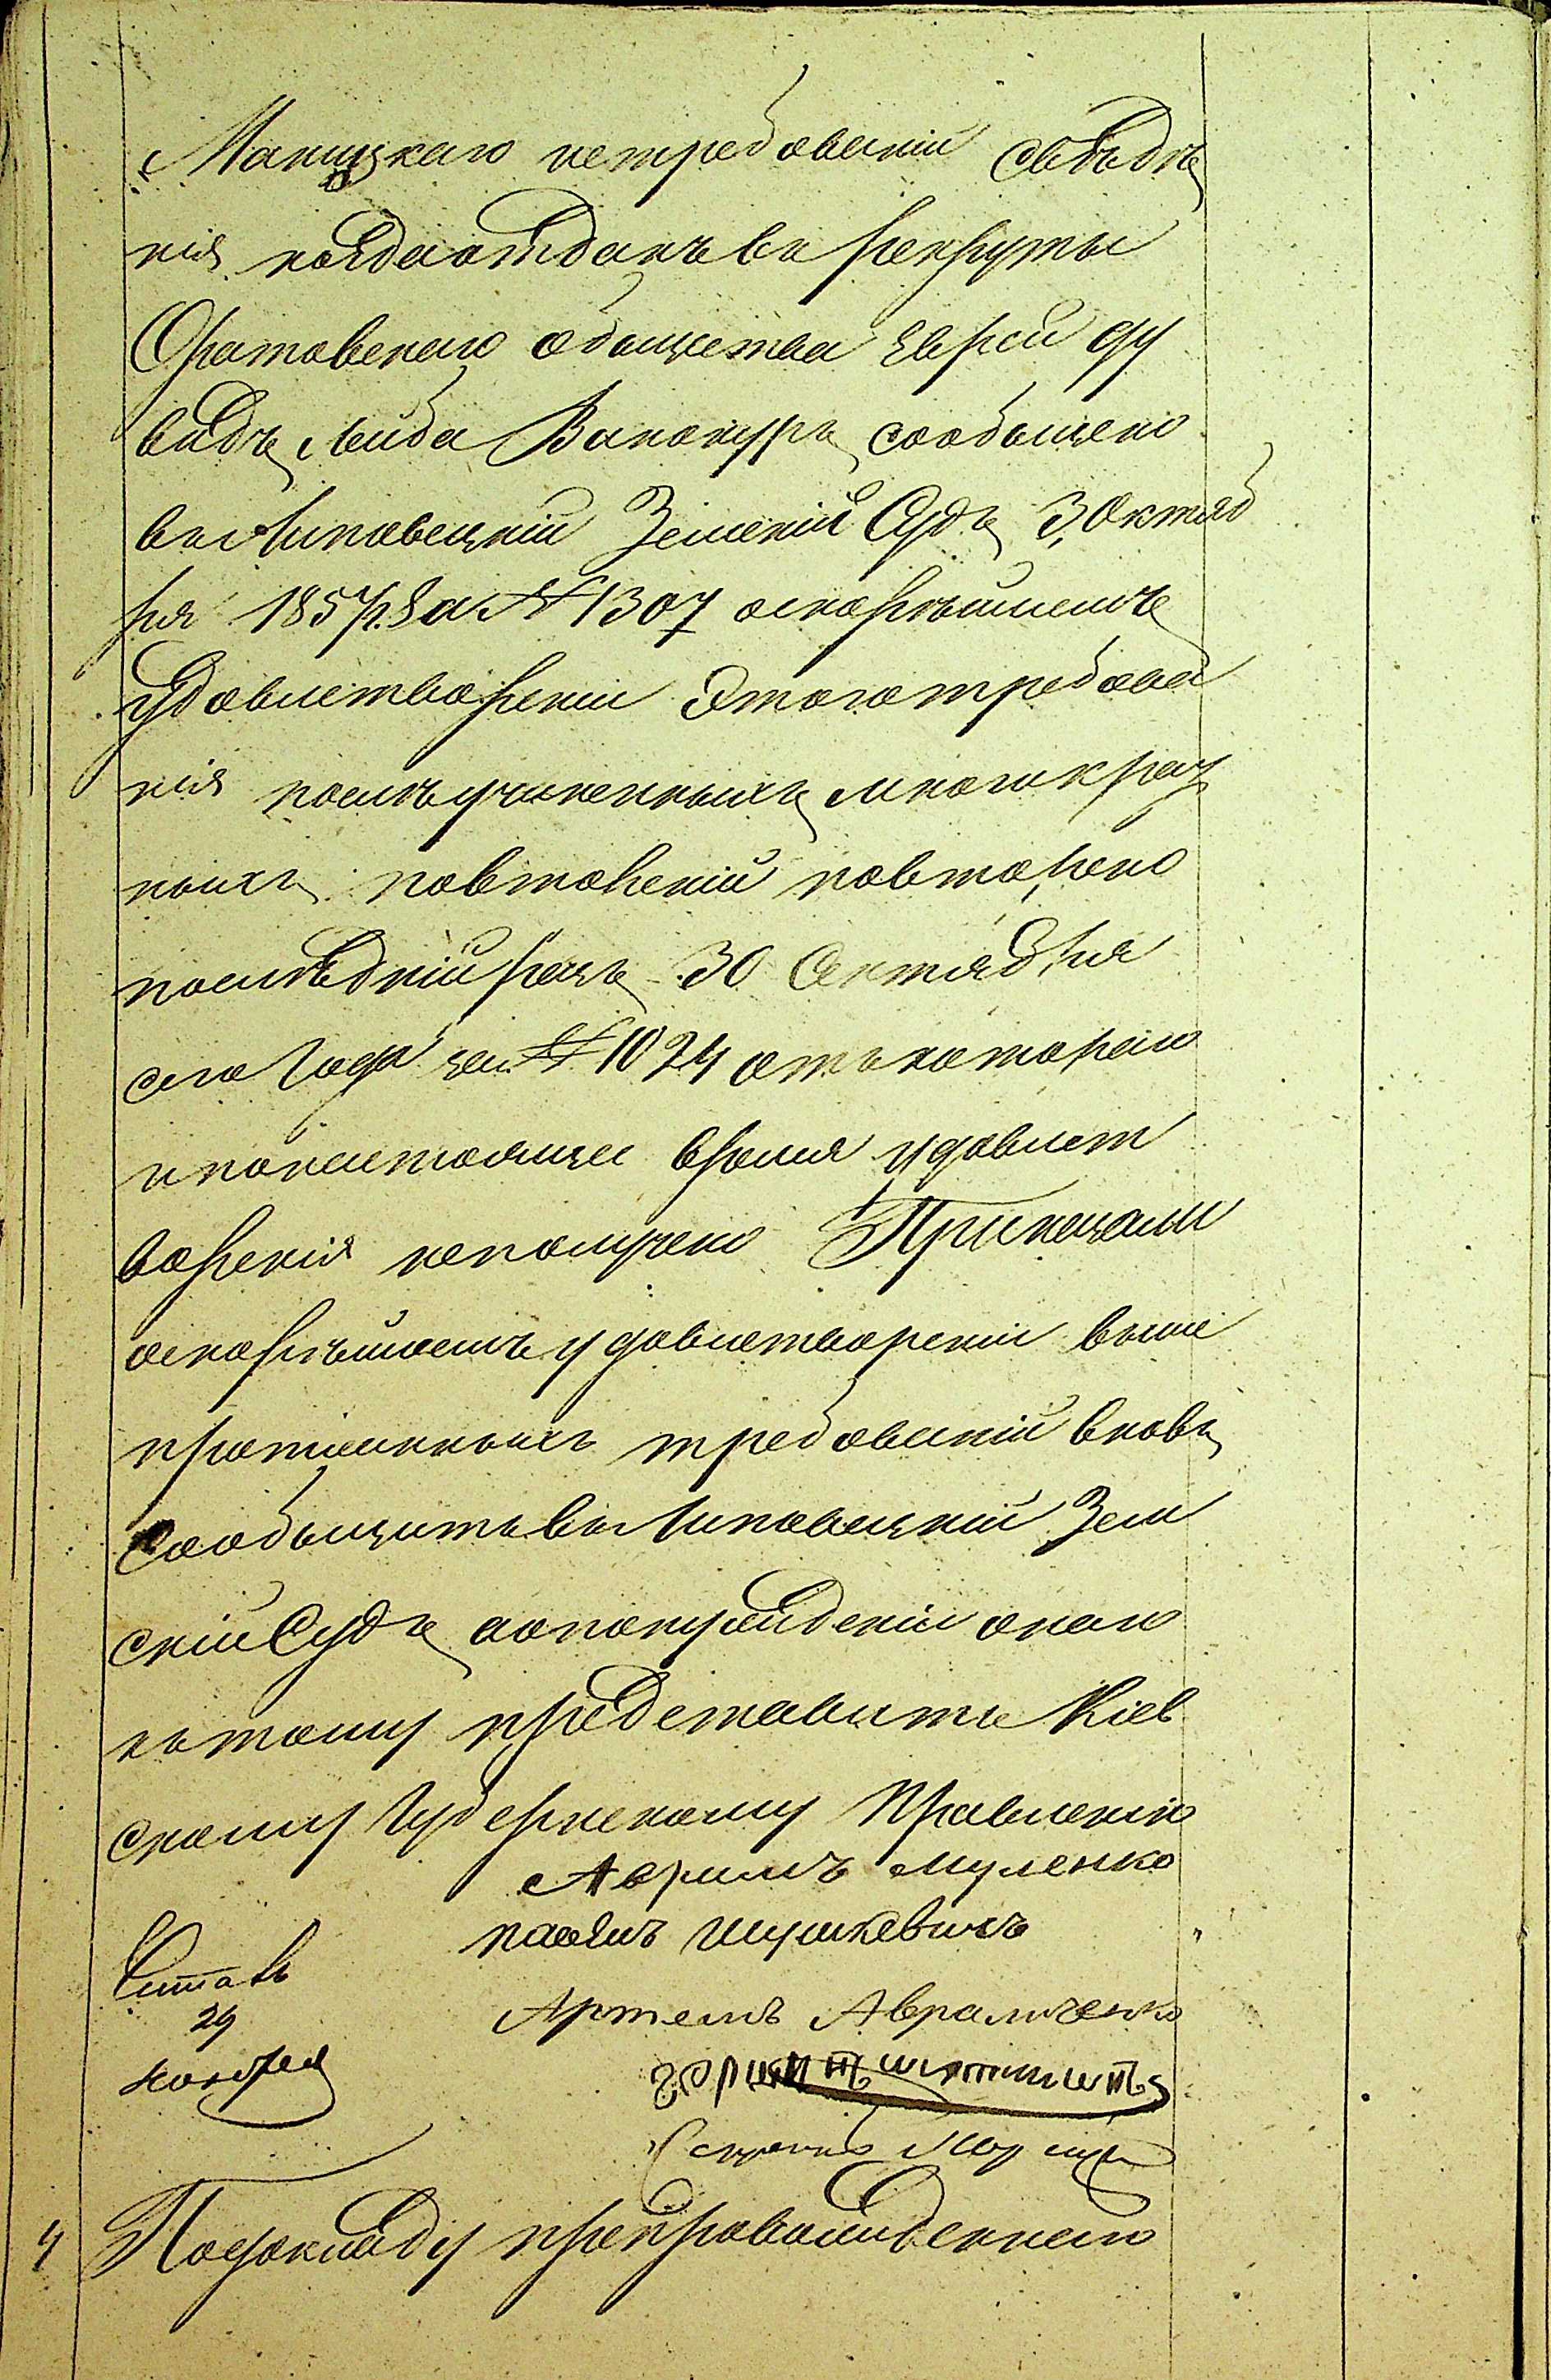 Маницкаго истребованій свѣдѣ
нія когда отданъ въ рекруты
Оратовскаго общества еврей Ду
видъ Лейба Винокуръ, сообщено
въ Липовецкій Земскій Судъ 3, Октяб
ря 1857 г. За № 1307 о скорѣйшемъ
удовлетвореніи этого требова
нія послѣ учиненныхъ многократ
ныхъ повтореній повторено
послѣдній разъ 30 Октября
сего Года за № 1024 отъ котораго
и по настоящее время удовлет
воренія не получено Приказали
о скорѣйшемъ удовлетвореніи выше
прописанныхъ требованій вновь
Сообщить въ Липовецкій Зем
скій Судъ, а о понужденіи онаго
къ тому представить Кіев
скому Губернскому Правленію
Аврамъ
Артемъ Авраменко
Читалъ
29
Ноября
Секретарь
4 По докладу препровожденнаго